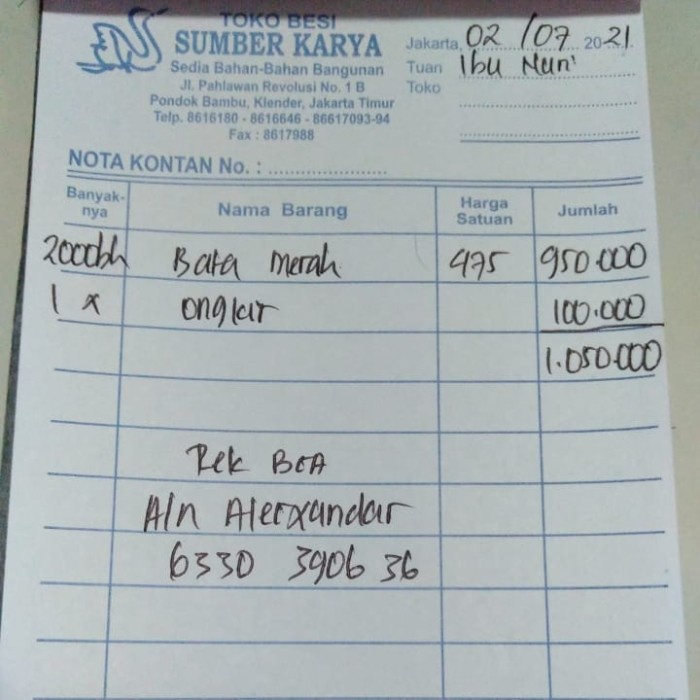 TOKO BESI
SUMBER KARYA
Sedia Bahan-Bahan Bangunan
Jl. Pahlawan Revolusi No. 1 B
Pondok Bambu, Klender, Jakarta Timur
Telp. 8616180 - 8616646 - 86617093-94
Fax : 8617988
Jakarta, 02 / 07 2021
Tuan Ibu Nuni
Toko
NOTA KONTAN No. :
Banyak-nya Nama Barang Harga Satuan Jumlah
2000bh Bata merah 475 950.000
1 x ongkir 100.000
1.050.000
Rek BCA
A/n Alerxandar
6330 3906 36